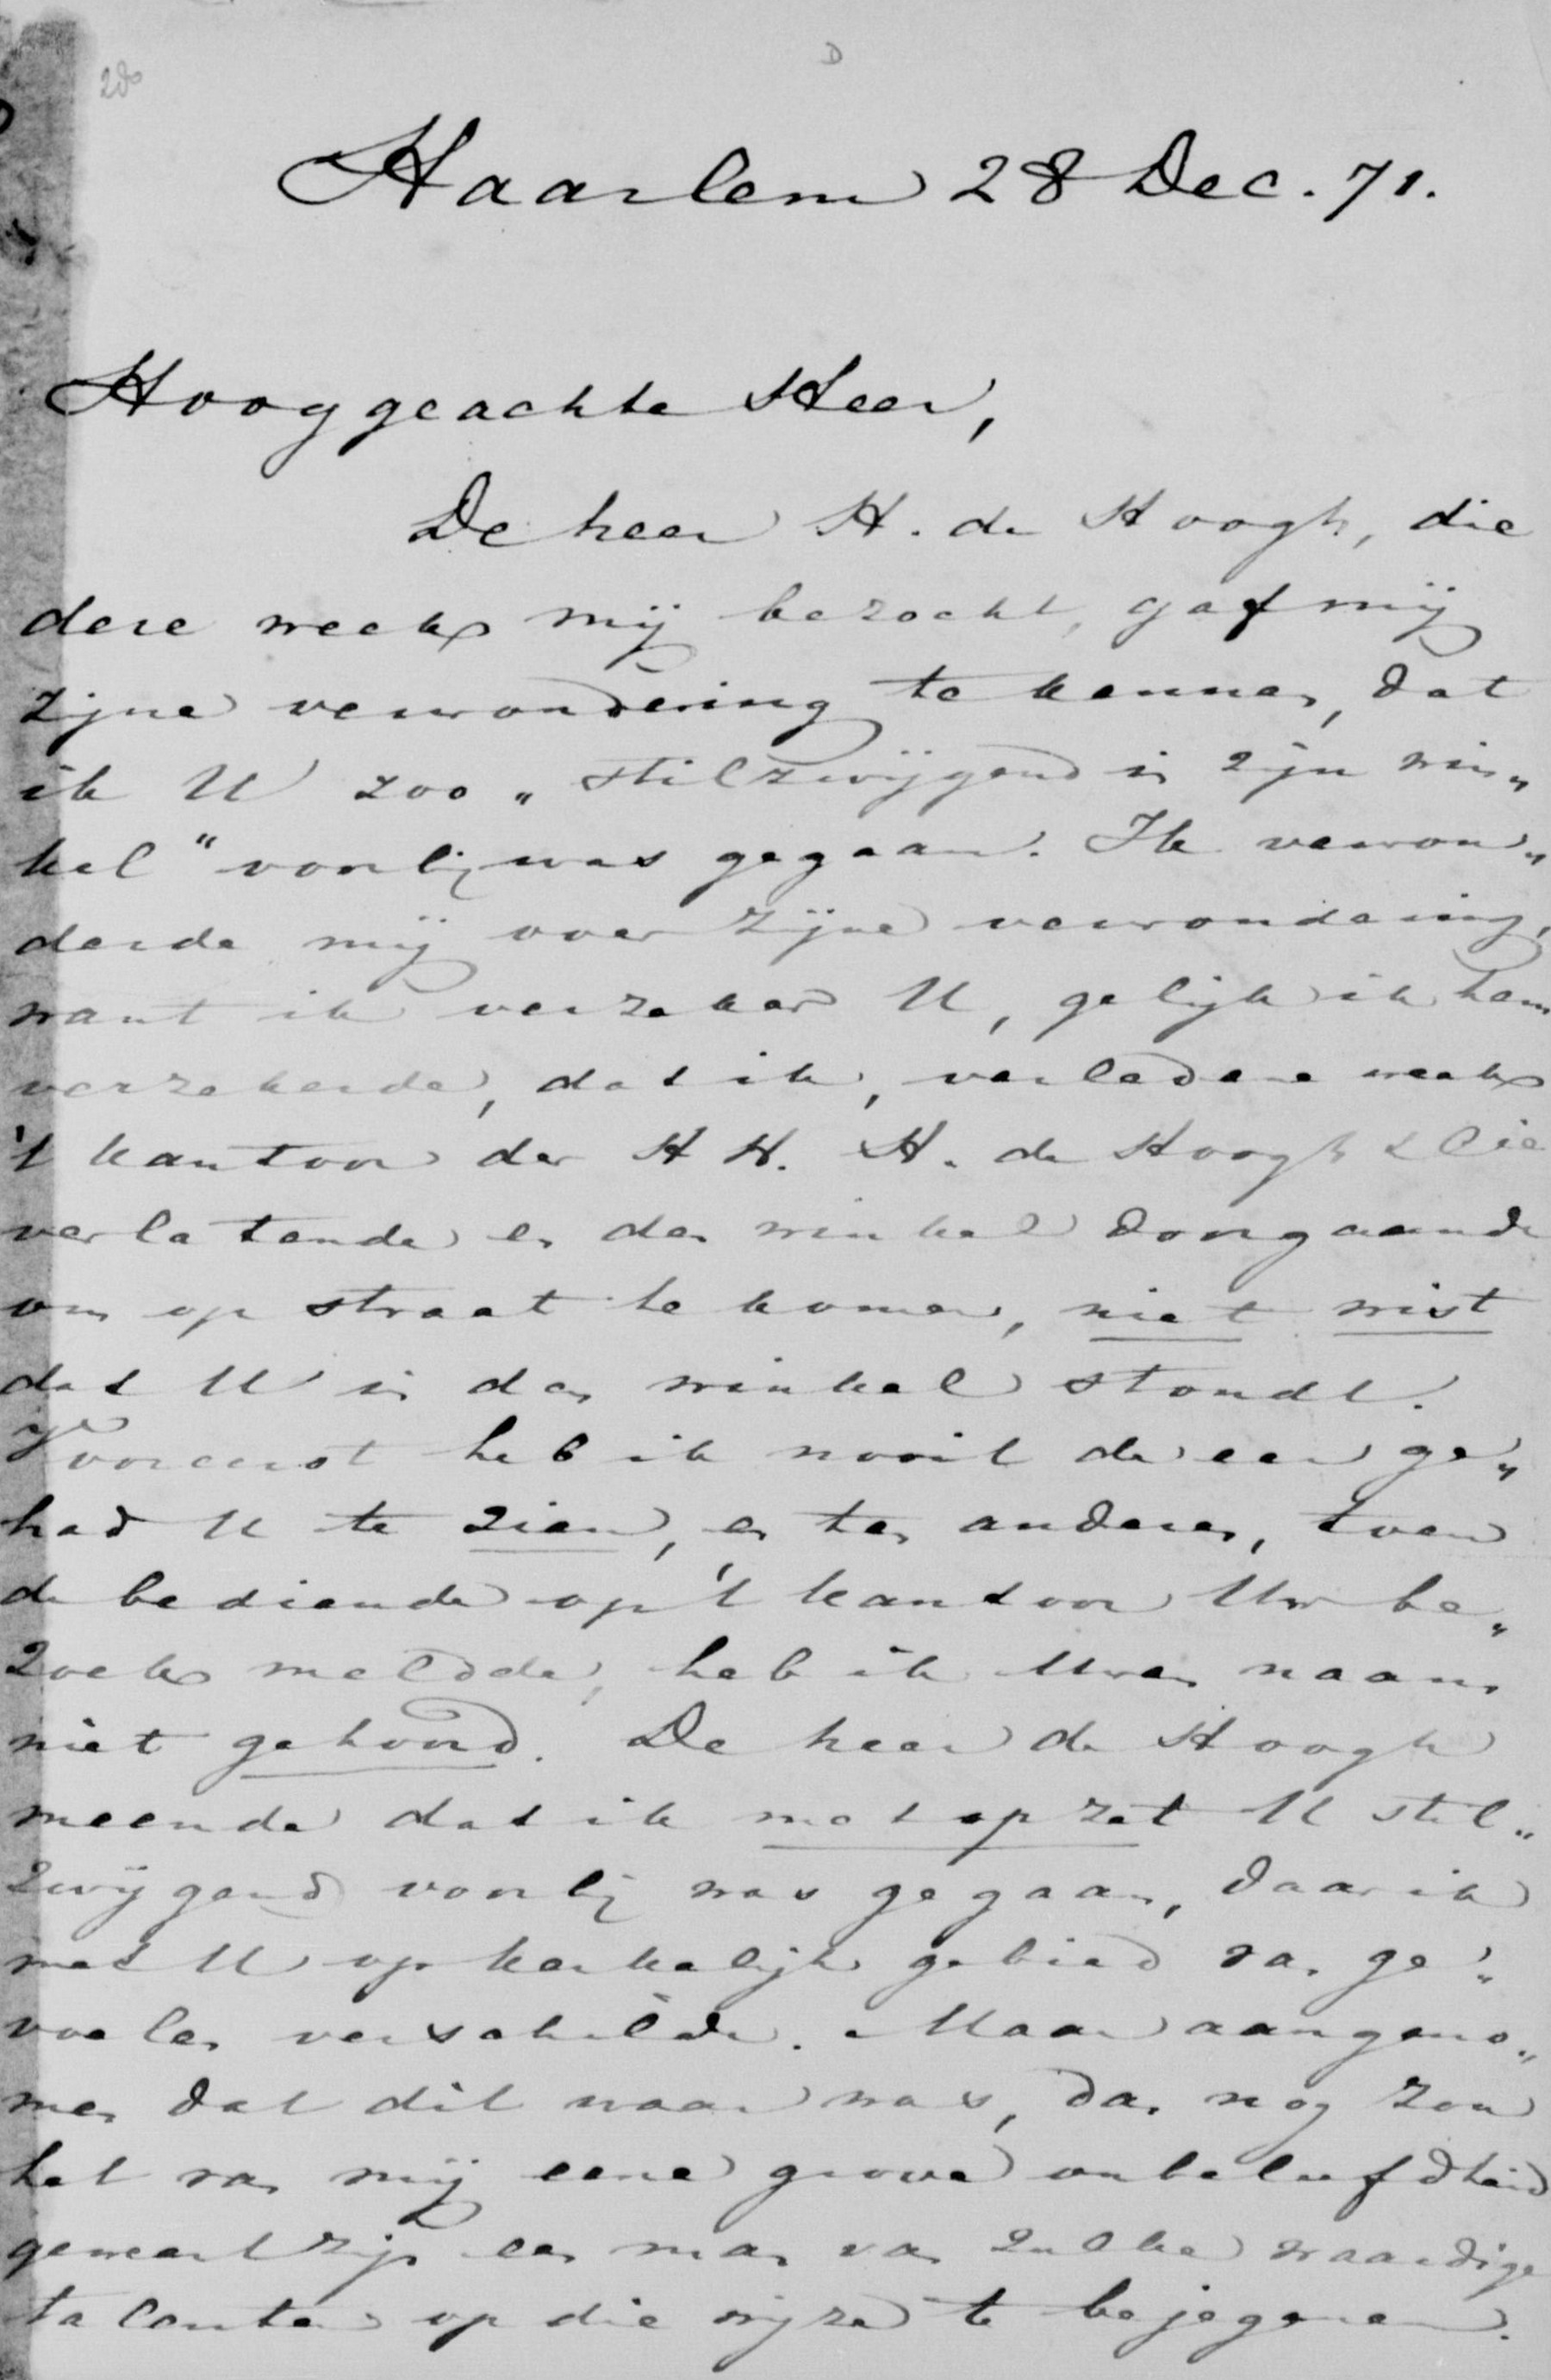 D
Haarlem 28 Dec. 71.
Hooggeachte Heer,
De heer H. de Hoogh, die
deze week mij bezocht, gaf mij
zijne verwondering te kennen, dat
ik U zoo „stilzwijgend in zijn win„
kel“ voorbij was gegaan. Ik verwon„
derde mij over zijne verwondering,
want ik verzeker U, gelijk ik hem
verzekerde, dat ik, verledene week
't kantoor der HH. H. de Hoogh & Cie
verlatende en den winkel doorgaande
om op straat te komen, niet wist
dat U in den winkel stondt.
Vooreerst heb ik nooit de eer ge„
had U te zien, en ten anderen, toen
de bediende op 't kantoor Uw be„
zoek meldde, heb ik Uwen naam
niet gehoord. De heer de Hoogh
meende dat ik met opzet U stil„
zwijgend voorbij was gegaan, daar ik
met U op kerkelijk gebied van ge„
voelen verschilde. Maar aangeno„
men dat dit waar was, dan nog zou
het van mij eene grove onbeleefdheid
geweest zijn een man van zulke waardige
talenten op die wijze te bejegenen.